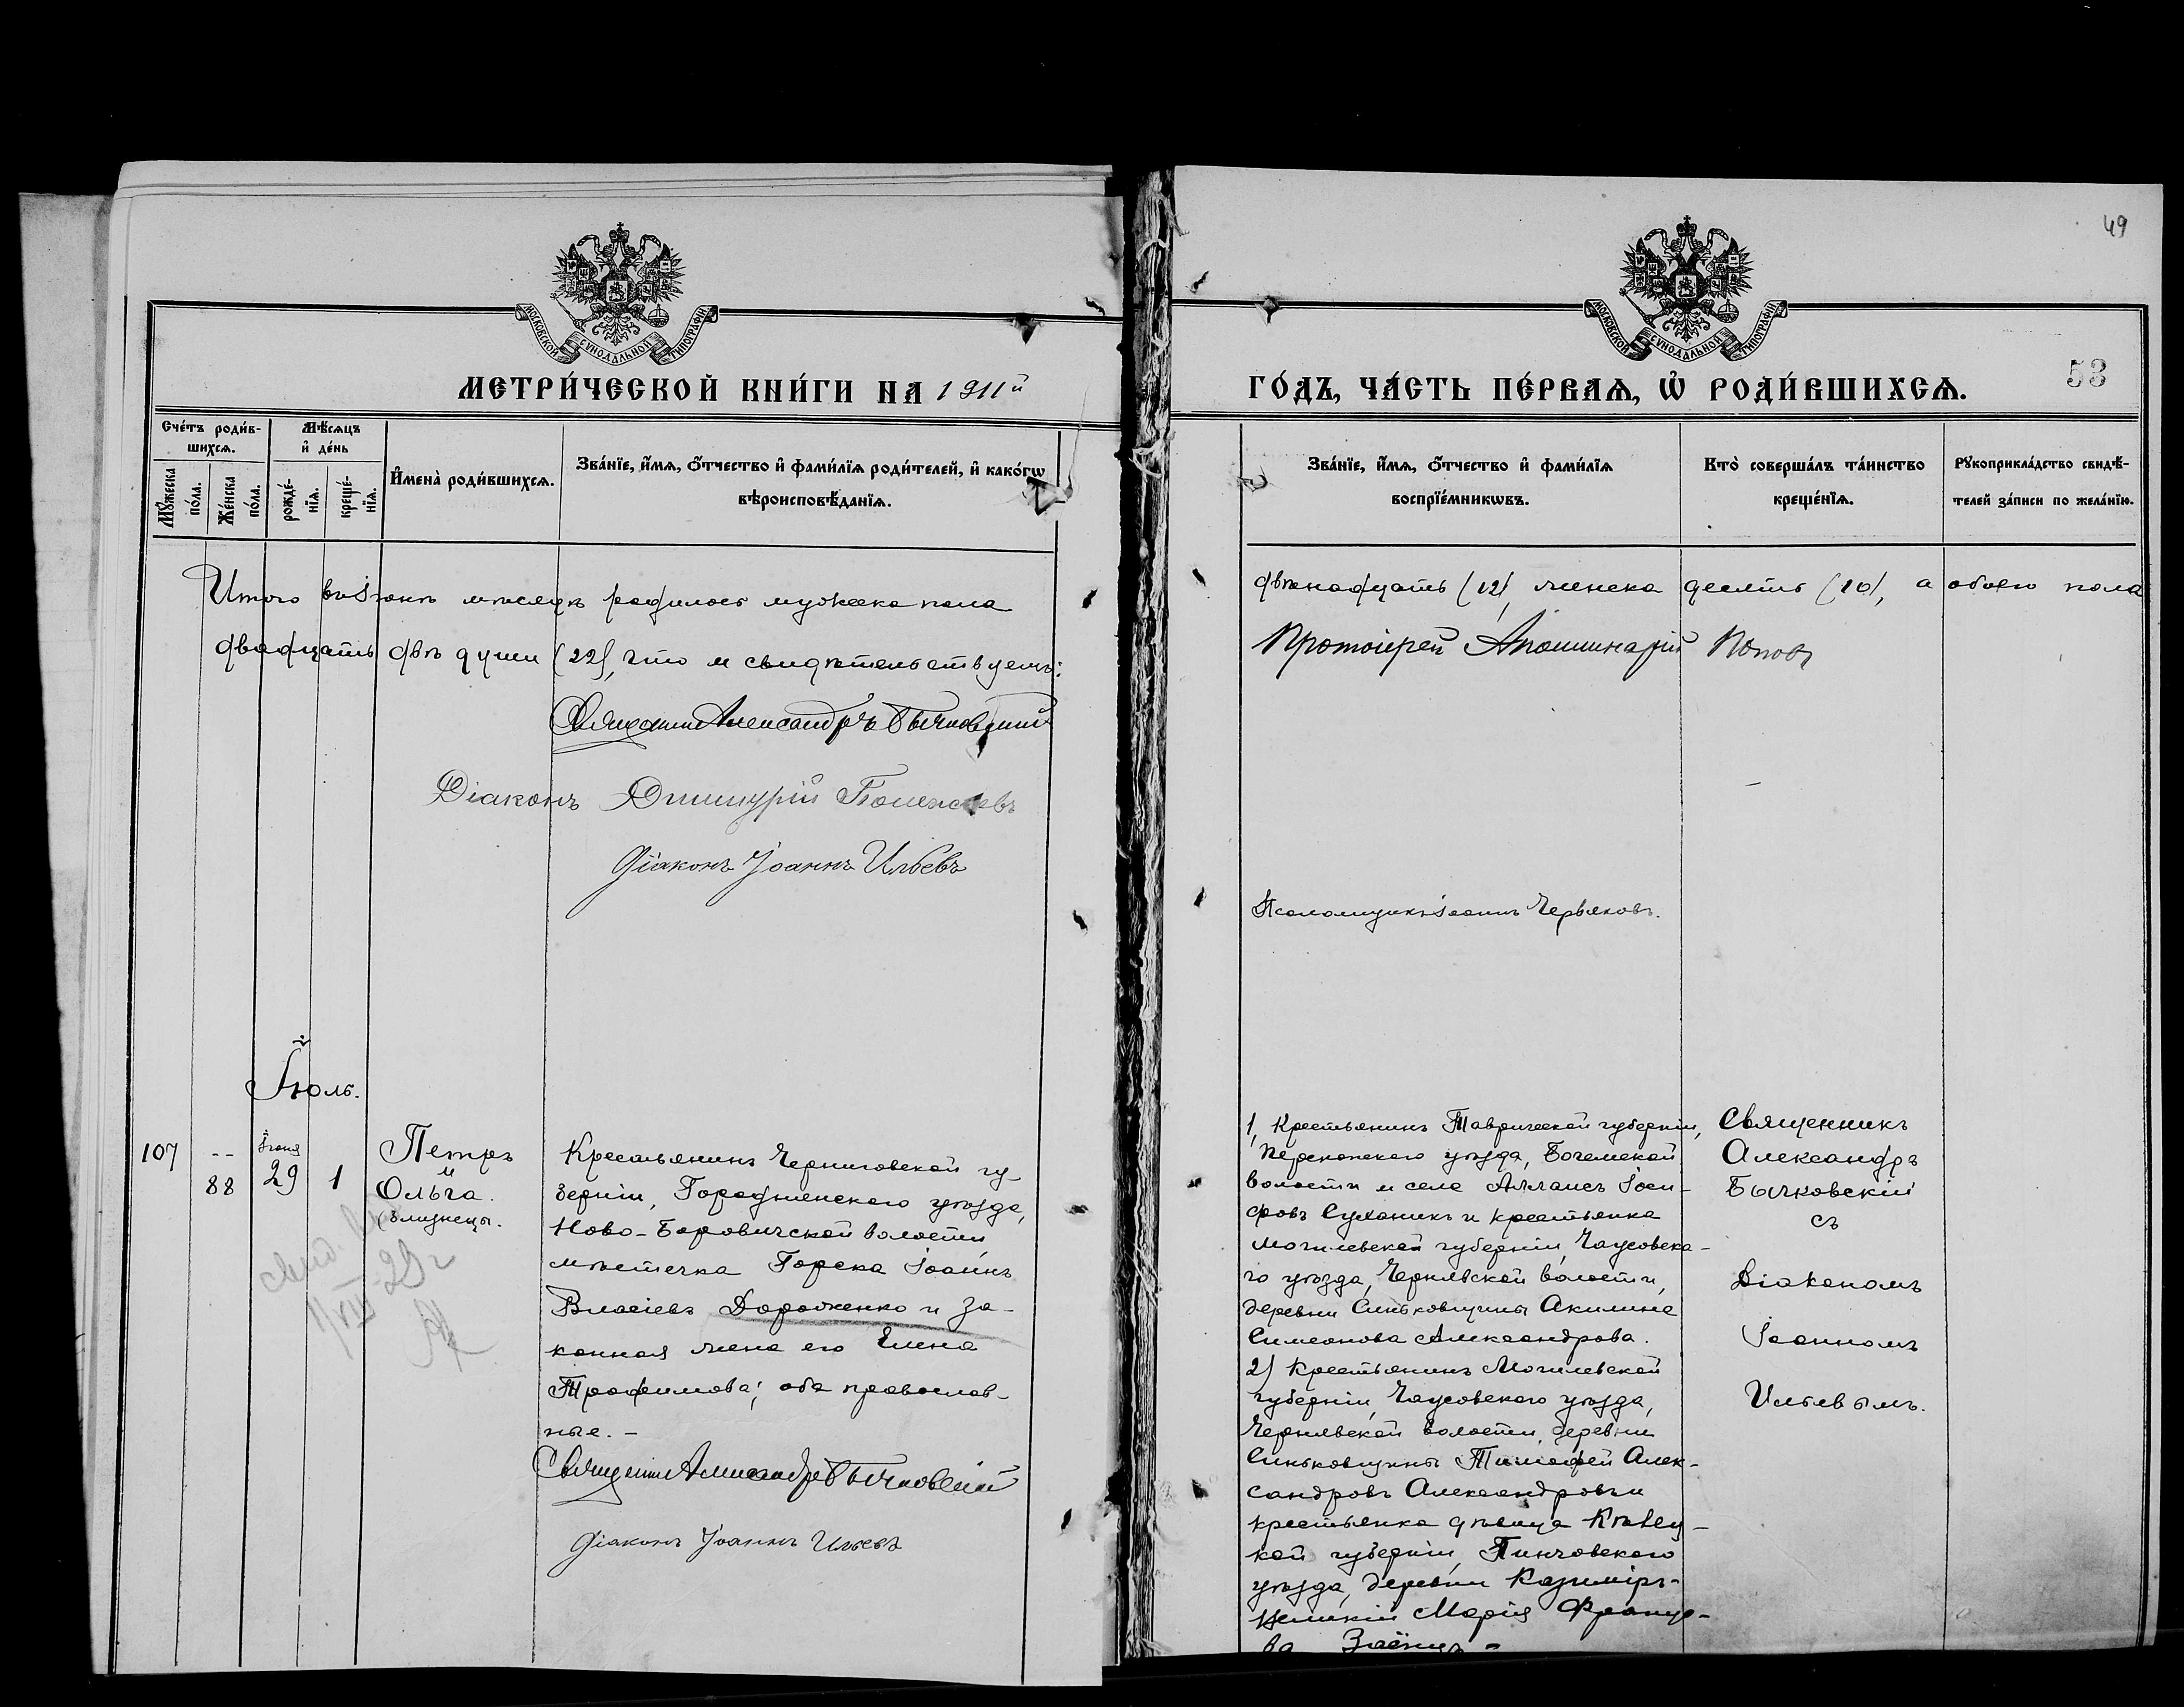 49
МОСКОВСКОЙ СУНОДАЛЬНОЙ ТИПОГРАФІИ
МОСКОВСКОЙ СУНОДАЛЬНОЙ ТИПОГРАФІИ
53
МЕТРИ́ЧЕСКОЙ КНИ́ГИ НА 1911й
ГО́ДЪ, ЧА́СТЬ ПЕ́РВАѦ, Ѡ҆ РОДИ́ВШИХСѦ.
Сче́тъ роди́в-
шихсѧ.
Мꙋ́жеска
по́ла.
Же́нска
по́ла.
Мѣ́сѧцъ
и҆ де́нь
рожде́-
нїѧ.
креще́-
нїѧ.
И҆мена̀ роди́вшихсѧ.
Зва́нїе, и҆́мѧ, ѻ҆́тчество и҆ фами́лїѧ роди́телей, и҆ како́гѡ
вѣроисповѣ́данїѧ.
Зва́нїе, и҆́мѧ, ѻ҆́тчество и҆ фами́лїѧ
воспрїе́мникѡвъ.
Кто̀ соверша́лъ та́инство
креще́нїѧ.
Рꙋкоприкла́дство свидѣ́-
телей за́писи по жела́нїю.
Итого въ Іюнѣ мѣсяцѣ родилось мужеска пола
двѣнадцать (12), женска десять (10), а обоего пола
двадцать двѣ души (22), что и свидѣтельствуемъ:
Протоіерей Аполлинарій Поповъ
Священникъ Александръ Бычковскій
Діаконъ Димитрій
Діаконъ Іоаннъ Ильевъ
Псаломщикъ Іоаннъ Червяковъ.
Іюль.
107
--
88
Іюня
29
1
Петръ
и
Ольга.
(близнецы.
29 г
Крестьянинъ Черниговской гу-
берніи, Городнянскаго уѣзда,
Ново-Боровичской волости
мѣстечка Горска Іоаннъ
Власіевъ Дорошенко и за-
конная жена его Елена
Трофимова; оба православ-
ные. –
Священникъ Александръ Бычковскій
Діаконъ Іоаннъ Ильевъ
1, Крестьянинъ Таврической губерніи,
Перекопскаго уѣзда, Богемской
волости и села Іоси-
фовъ Суханикъ и крестьянка
Могилевской губерніи, Чаусовска-
го уѣзда, Чернявской волости,
деревни Синьковщины Акилина
Симеонова Александрова.
2) Крестьянинъ Могилевской
губерніи, Чаусовскаго уѣзда,
Чернявской волости, деревни
Синьковщины Тимофей Алек-
сандровъ Александровъ и
крестьянка дѣвица Кѣлец-
кой губерніи, Пинчовскаго
уѣзда, деревни Казиміръ-
Великій Марія Францо-
ва
Священникъ
Александръ
Бычковскій
съ
Діакономъ
Іоанномъ
Ильевымъ.